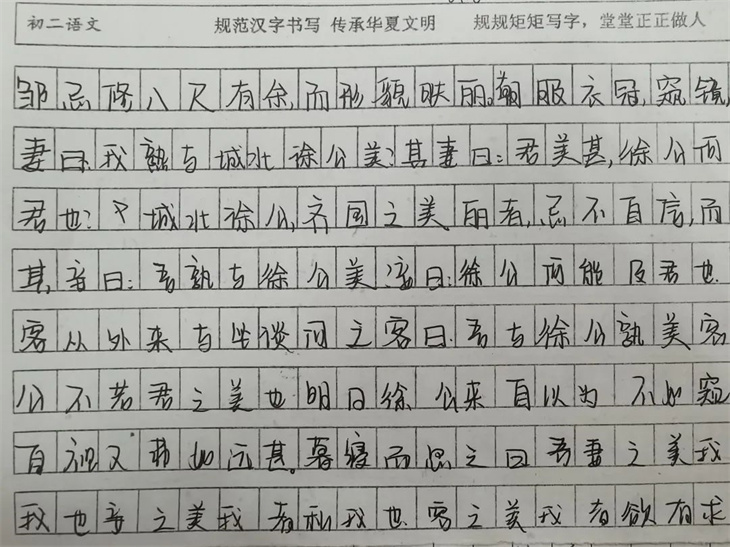 初二语文 规范汉字书写 传承华夏文明 规规矩矩写字，堂堂正正做人
邹忌修八尺有余,而形貌昳丽。朝服衣冠,窥镜,
妻曰:我孰与城北徐公美?其妻曰:君美甚,徐公何
君也?城北徐公,齐国之美丽者,忌不自信,而
其妾曰:吾孰与徐公美 妾曰:徐公何能及君也.
客从外来与坐谈问之客曰.吾与徐公孰美客
公不若君之美也明日徐公来 自以为 不如窥
自视又弗如远甚。暮寝而思之曰吾妻之美我
我也妾之美我者私我也.客之美我者欲有求